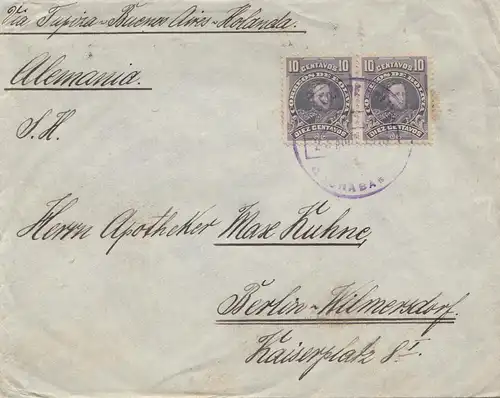 Via Tupiza-Buenos Aires-Holanda.
Alemania.
S. H.
10 CENTAVOS 10
CORREOS DE BOLIVIA
DIEZ CENTAVOS
10 CENTAVOS 10
CORREOS DE BOLIVIA
DIEZ CENTAVOS
Herrn Apotheker Max Kuhne,
Berlin-Wilmersdorf.
Kaiserplatz 8 I.